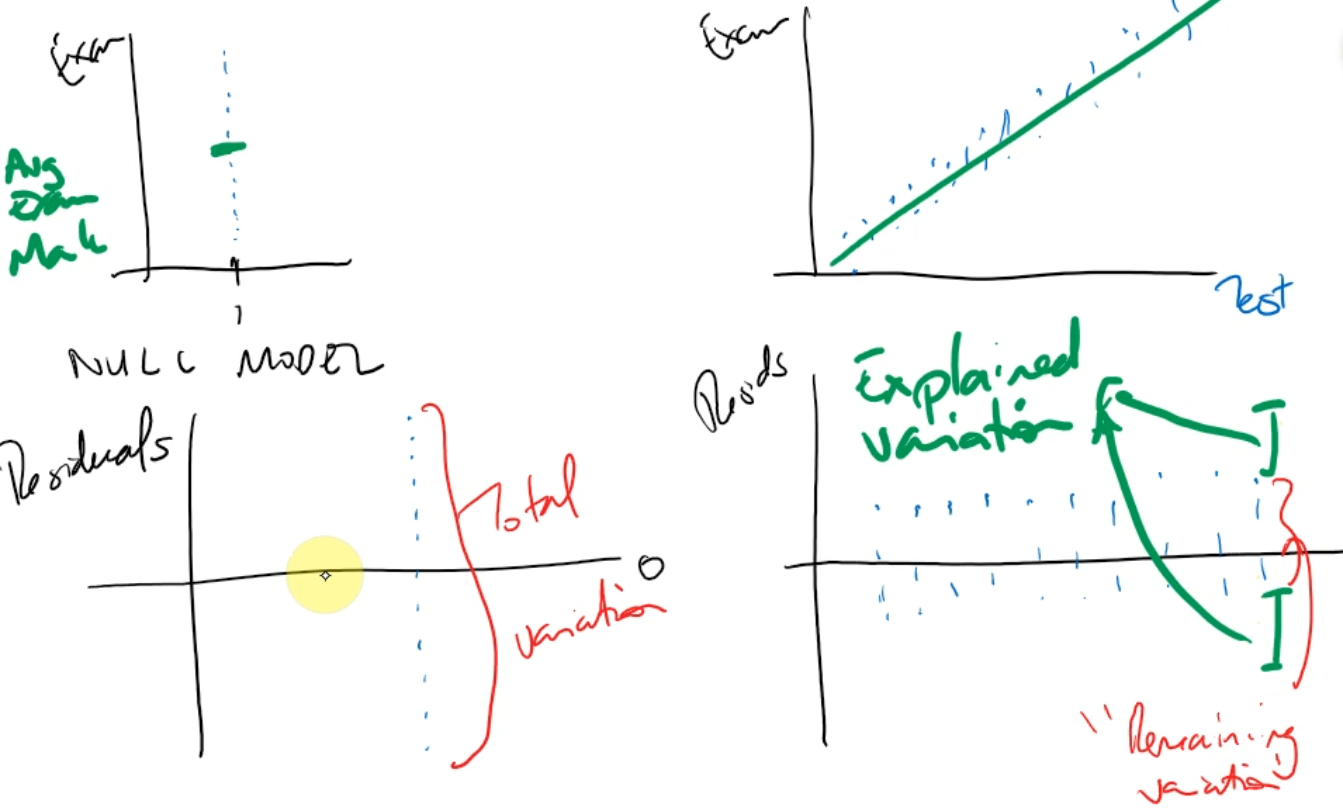 Exam
Avg
Exam
Mark
1
NULL MODEL
Exam
Test
Residuals
Total
variation
0
Resids
Explained
variation
"Remaining
variation"